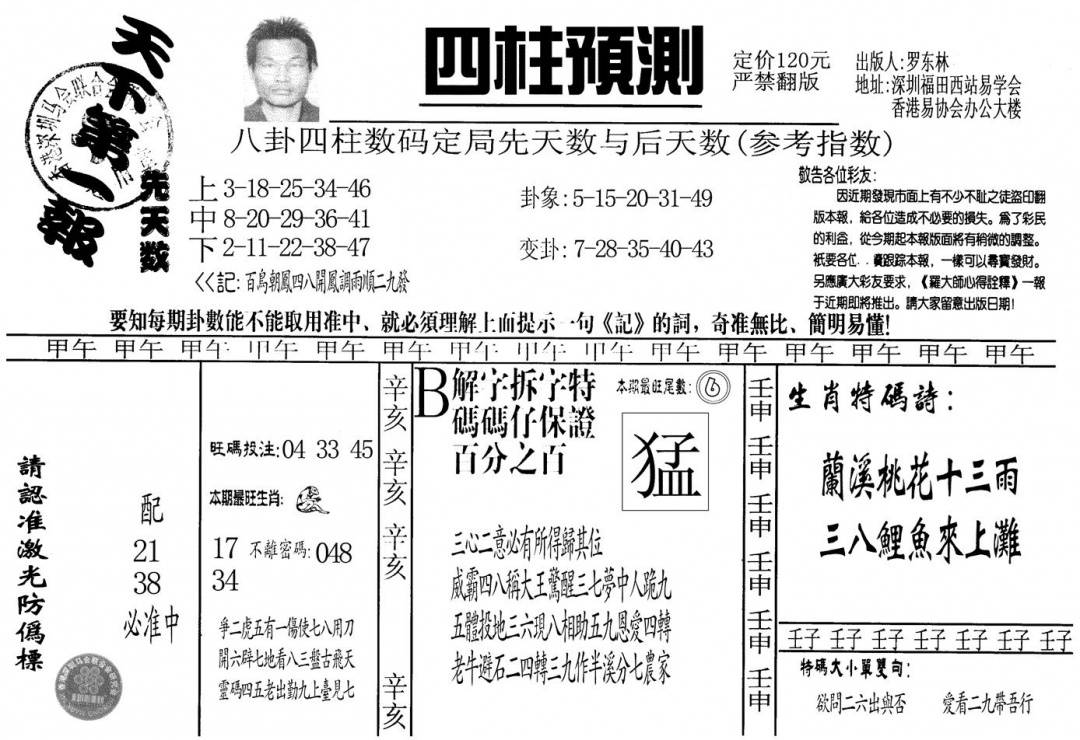 天下第一報
四柱預測
定价120元
严禁翻版
出版人:罗东林
地址:深圳福田西站易学会
香港易协会办公大楼
八卦四柱数码定局先天数与后天数(参考指数)
先天数
上3-18-25-34-46
中8-20-29-36-41
下2-11-22-38-47
卦象:5-15-20-31-49
变卦:7-28-35-40-43
<<記:百鳥朝鳳四八開鳳調雨順二九發
敬告各位彩友:
因近期發現市面上有不少不耻之徒盜印翻
版本報，給各位造成不必要的損失。爲了彩民
的利益，從今期起本報版面將有稍微的調整。
衹要各位..賣跟踪本報，一樣可以尋寶發財。
另應廣大彩友要求，《羅大師心得詮釋》一報
于近期即將推出。請大家留意出版日期!
要知每期卦數能不能取用准中、就必須理解上面提示一句《記》的詞，奇准無比、簡明易懂!
甲午 甲午 甲午 甲午 甲午 甲午 甲午 甲午 甲午 甲午 甲午 甲午 甲午 甲午 甲午
請認准激光防僞標
配
21
38
必准中
旺碼投注:04 33 45
本期最旺生肖:
17 不離密碼:048
34
爭二虎五有一傷使七八用刀
開六辟七地看八三盤古飛天
靈碼四五老出勤九上臺見七
辛亥
辛亥
辛亥
辛亥
B解字拆字特
碼碼仔保證
百分之百
本期最旺尾數:6
猛
三心二意必有所得歸其位
威霸四八稱大王驚醒三七夢中人跪九
五體投地三六現八相助五九恩愛四轉
老牛避石二四轉三九作半溪分七農家
壬申
壬申
壬申
壬申
壬申
壬申
生肖特碼詩:
蘭溪桃花十三雨
三八鯉魚來上灘
壬子 壬子 壬子 壬子 壬子 壬子 壬子
特碼大小單雙句:
欲問二六出與否 愛看二九帶吾行